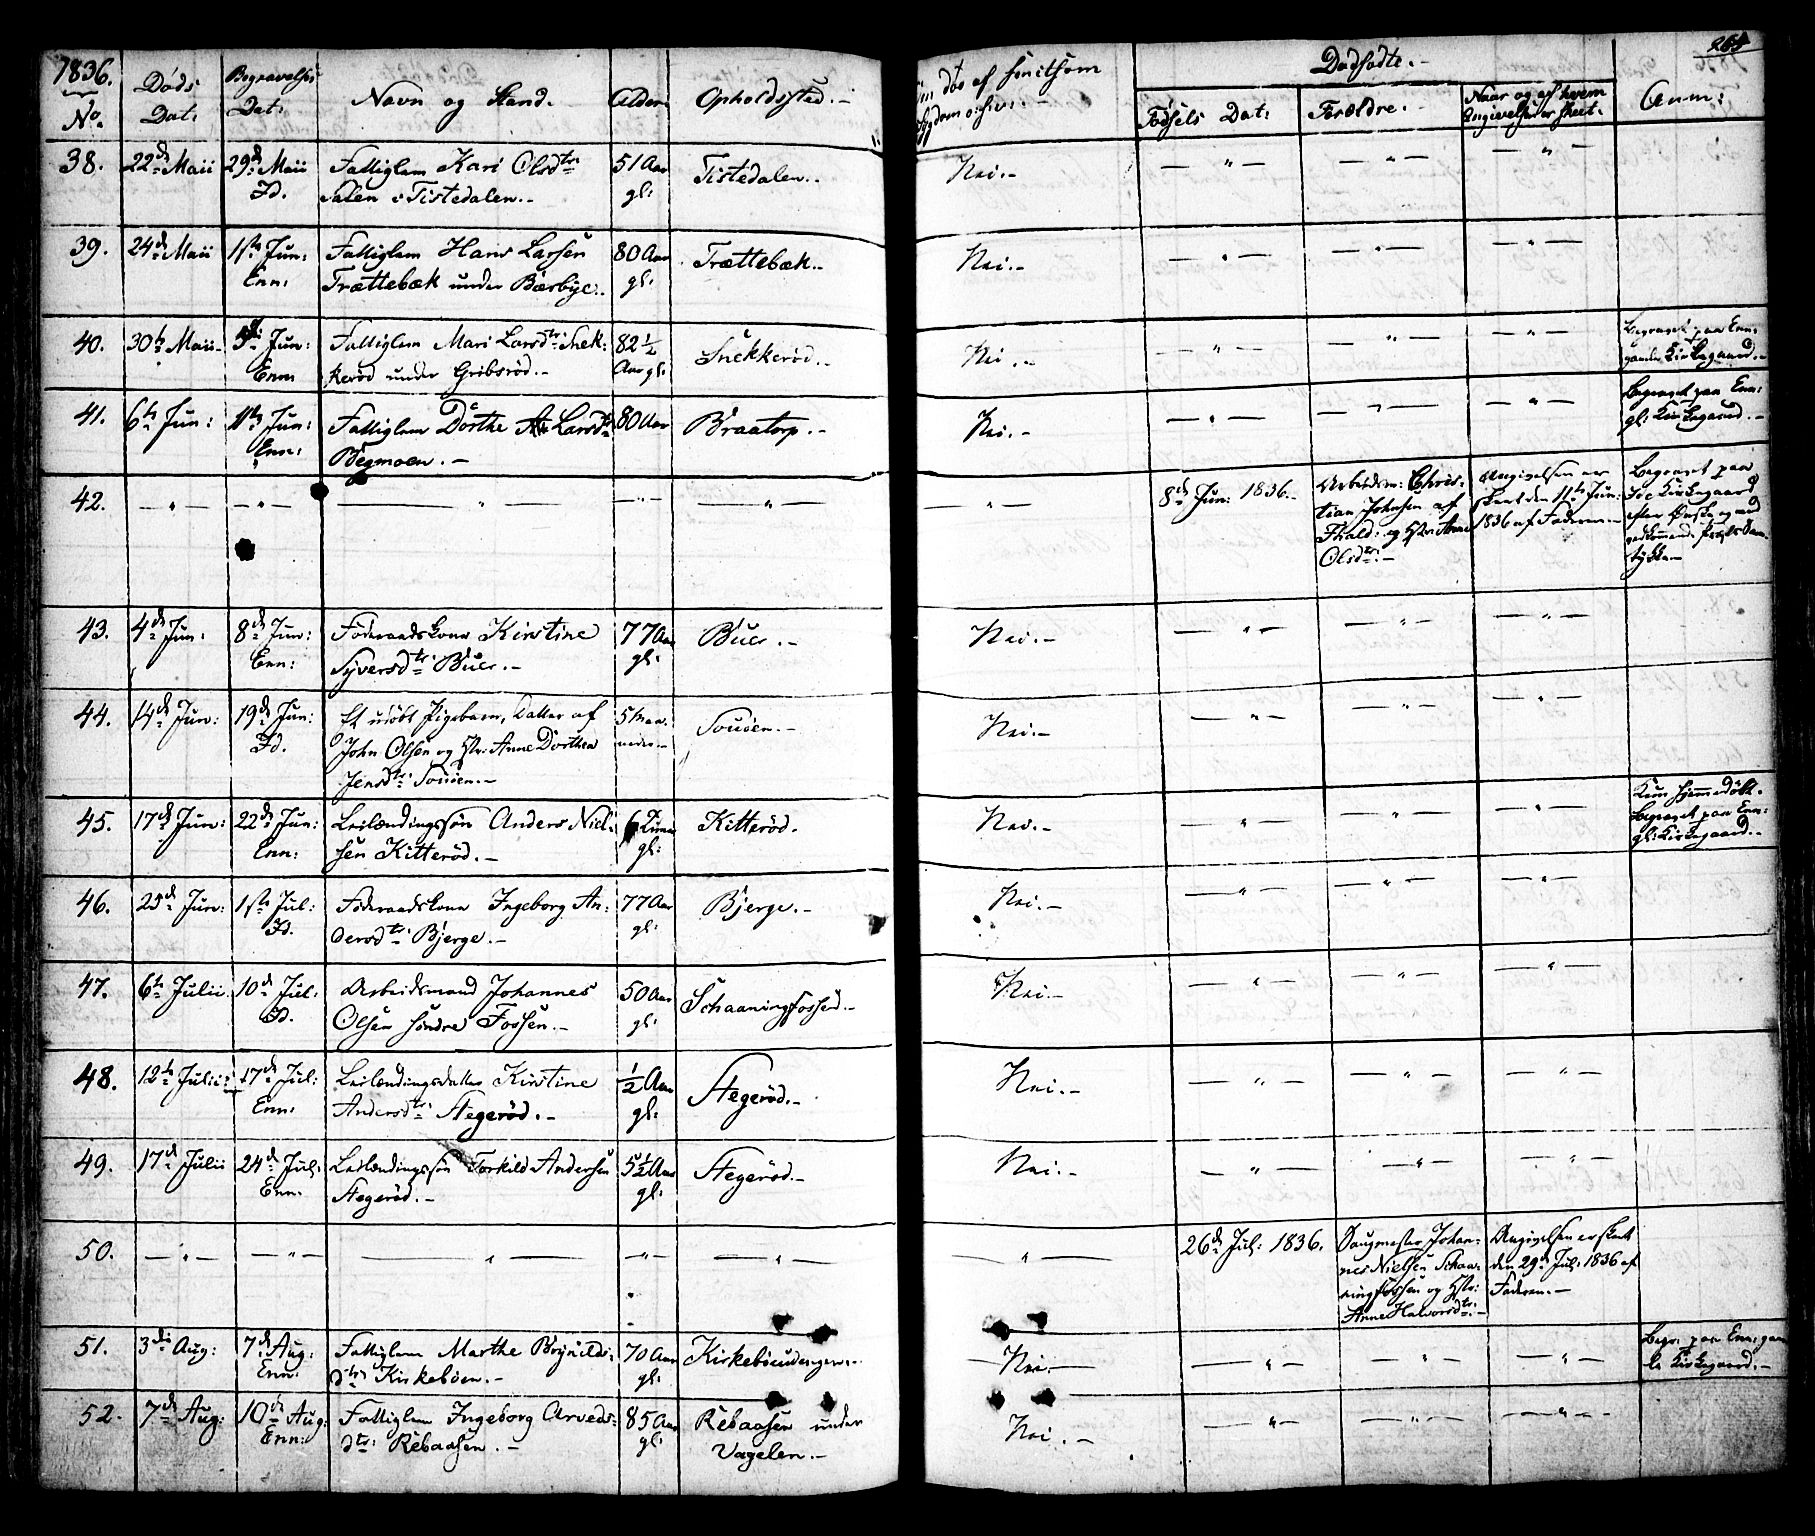 1836.
No.
Døds
Dat:
Begravelses
Dat:
Navn og Stand.
Alder
Opholdssted.-
Om død af smitsom
Sygdom o: s: v: -
Dødfødte.-
Fødsels Dat:
Forældre.-
Naar og af hvem
Angivelsen er skeet.-
Anm:
265
38. 22de Maii 29de Maii Fattiglem Kari Olsdtr 51 Aar Tistedalen.- Nei.- — " — — " — — " —
Id. Salen i Tistedalen.- gl:
39. 24de Maii 1ste Jun: Fattiglem Hans Larsen 80 Aar Trættebæk.- Nei.- — " — — " — — " —
Enn: Trættebæk under Bærbye.- gl:
40. 30te Maii 5de Jun: Fattiglem Mari Larsdtr: Snek- 82 1/2 Snekkerød.- Nei.- — " — — " — — " — Begravet paa Enn:
Enn: kerød under Gribsrød.- Aar gl: gamle Kirkegaard.-
41. 6te Jun: 11te Jun: Fattiglem Dorthe Larsdtr 80 Aar Braatorp.- Nei.- — " — — " — — " — Begravet paa Enn:
Enn: Begmoen.- gl: Kirkegaard.-
42. — " — — " — — " — — " — — " — — " — 8de Jun: 1836.- Arbeidsm: Chris- Angivelsen er Begravet paa
tian Johnsen af skeet den 11te Jun: Kirkegaard
Fhald: og Hstr: Anne 1836 af Faderen.- efter Ønske og med
Olsdtr:- vedkommende Sam-
tykke.-
43. 4de Jun: 8de Jun: Føderaadskone Kirstine 77 Aar Buer.- Nei.- — " — — " — — " —
Enn: Syversdtr: Buer.- gl:
44. 14de Jun: 19de Jun: Et udøbt Pigebarn, Datter af 5 Maa- Souøen.- Nei.- — " — — " — — " —
Id. John Olsen og Hstr: Anne Dorthea neder.-
Jensdtr: Souøen.-
45. 17de Jun: 22de Jun: Leilændingssøn Anders Niel- 6 Timer Kitterød. Nei.- — " — — " — — " — Kun hjemmedøbt.
Enn: sen Kitterød.- gl: Begravet paa Enn:
gl: Kirkegaard.-
46. 25de Jun: 1ste Jul: Føderaadskone Ingeborg An- 77 Aar Bjerge.- Nei.- — " — — " — — " —
Id. dersdtr: Bjerge.- gl:
47. 6te Julii 10de Jul: Arbeidsmand Johannes 50 Aar Schaaningfossen.- Nei.- — " — — " — — " —
Id. Olsen søndre Fossen.- gl:
48. 12te Julii 17de Jul: Leilændingsdatter Kirstine 1/2 Aar Stegerød.- Nei.- — " — — " — — " —
Enn: Andersdtr: Stegerød.- gl:
49. 17de Julii 24de Jul: Leilændingssøn Torkild Andersen 5 1/2 Aar Stegerød.- Nei.- — " — — " — — " —
Enn: Stegerød.- gl:
50. — " — — " — — " — — " — — " — — " — 26de Jul: 1836. Saugmester Johan- Angivelsen er skeet
nes Nielsen Schaa- den 29de Jul: 1836 af
ningfossen og Hstr: Faderen.-
Anne Halvorsdtr:-
51. 3die Aug: 7de Aug: Fattiglem Marthe Brynilds- 70 Aar Kirkebøeudengen.- Nei.- — " — — " — — " — Begr: paa Enn: gam-
Enn: dtr: Kirkebøen.- gl: le Kirkegaard.-
52. 7de Aug: 10de Aug: Fattiglem Ingeborg Arveds- 85 Aar Rebaasen under Nei.- — " — — " — — " —
Enn: dtr: Rebaasen.- gl: Vagelen.-